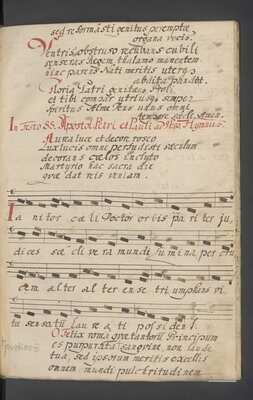 sed reformasti genitus peremptæ
organa vocis.
Ventris obstruso recubans cubili
senseras Regem, thalamo manentem
hinc parens Nati meritis uterq
abdita pandit.
Gloria Patri genitæq Proli
et tibi compar utriusq semper
Spiritus Alme Deus unus omni
tempore sæcli. Amen.
In Festo SS. Apostol. Petri et Pauli ad Hymnus.
Aurea luce et decore roseo
Lux lucis omne perfudisti sæculum
decorans cælos inclyto
Martyrio hac sacra die
quæ dat reis veniam.
Ia ni tor cæ li Doctor or bis pa ri ter ju
di ces sæ cli ve ra mundi lu mi na per cru
cem al ter al ter en se tri umphans vi
tæ senatū lau re a ti pos si dent.
O felix roma quæ tantorū Principum
es purpurata sanguine non laude
tua sed ipsorum meritis excellis
omnem mundi pulcritudinem